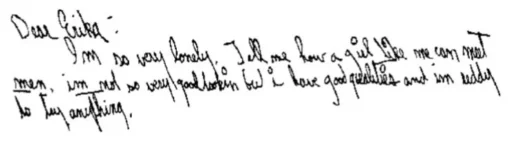 Dear Erika:
I'm so very lonely. Tell me how a girl like me can meet
men. im not so very goodlookin but i have good qualities and im reddy
to try anything.